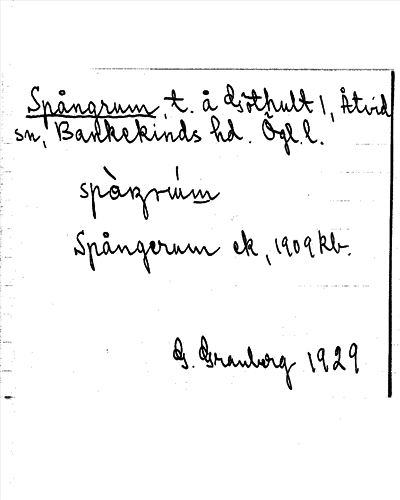 Spångrum, t. å Göthult 1, Åtvid
sn, Bankekinds hd. Ögl. l.
spàŋrúm
Spångerum ek, 1909 kb.
G. Granberg 1929